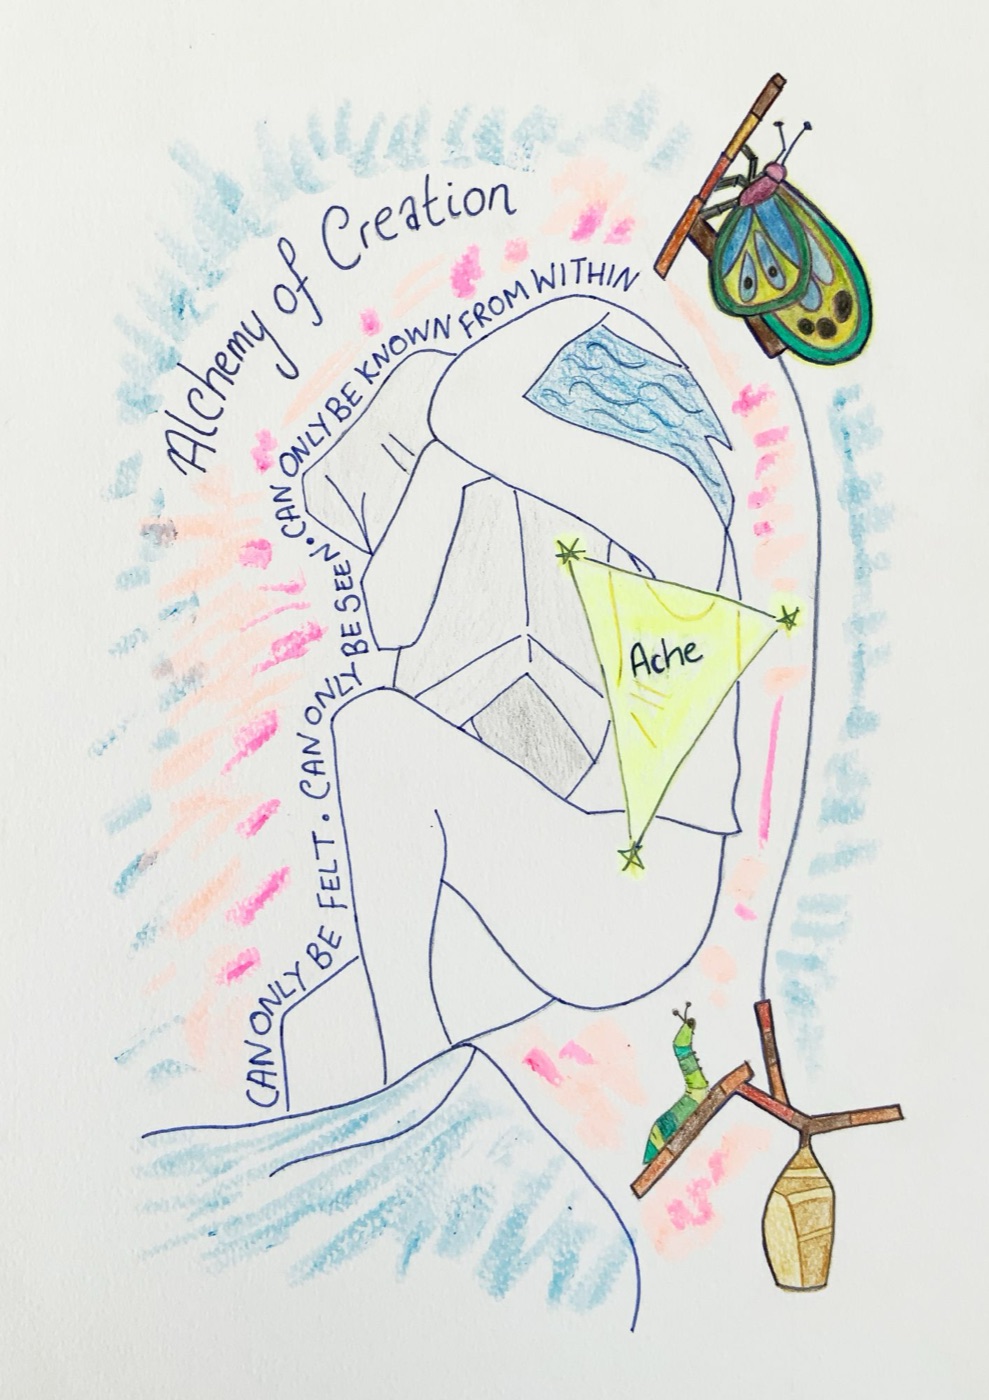 Alchemy of Creation
CAN ONLY BE FELT. CAN ONLY BE SEEN. CAN ONLY BE KNOWN FROM WITHIN
Ache